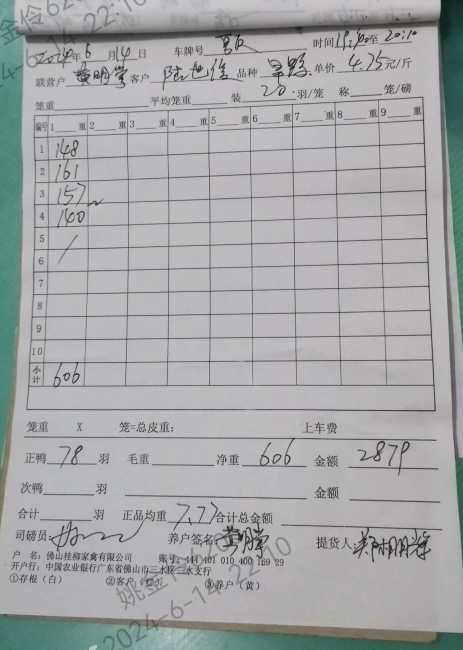 2024年6月14日 车牌号 时间19:40至20:10
联营户 黄明学 客户 陆旭佳 品种 单价 4.75元/斤
笼重 平均笼重 装 20 羽/笼 称 笼/磅
编号 1 重 2 重 3 重 4 重 5 重 6 重 7 重 8 重 9 重
1 148
2 161
3 157
4 140
5 /
6
7
8
9
10
小计 606
笼重 X 笼=总皮重: 上车费
正鸭 78 羽 毛重 净重 606 金额 2879
次鸭 羽 金额
合计 羽 正品均重 7.77 合计总金额
司磅员 养户签名 黄明学 提货人
户 名: 佛山桂柳家禽有限公司 账号:
开户行: 中国农业银行广东省佛山市三水
①存根(白) ②客户 ③养户(黄)
2024-6-14 22:10